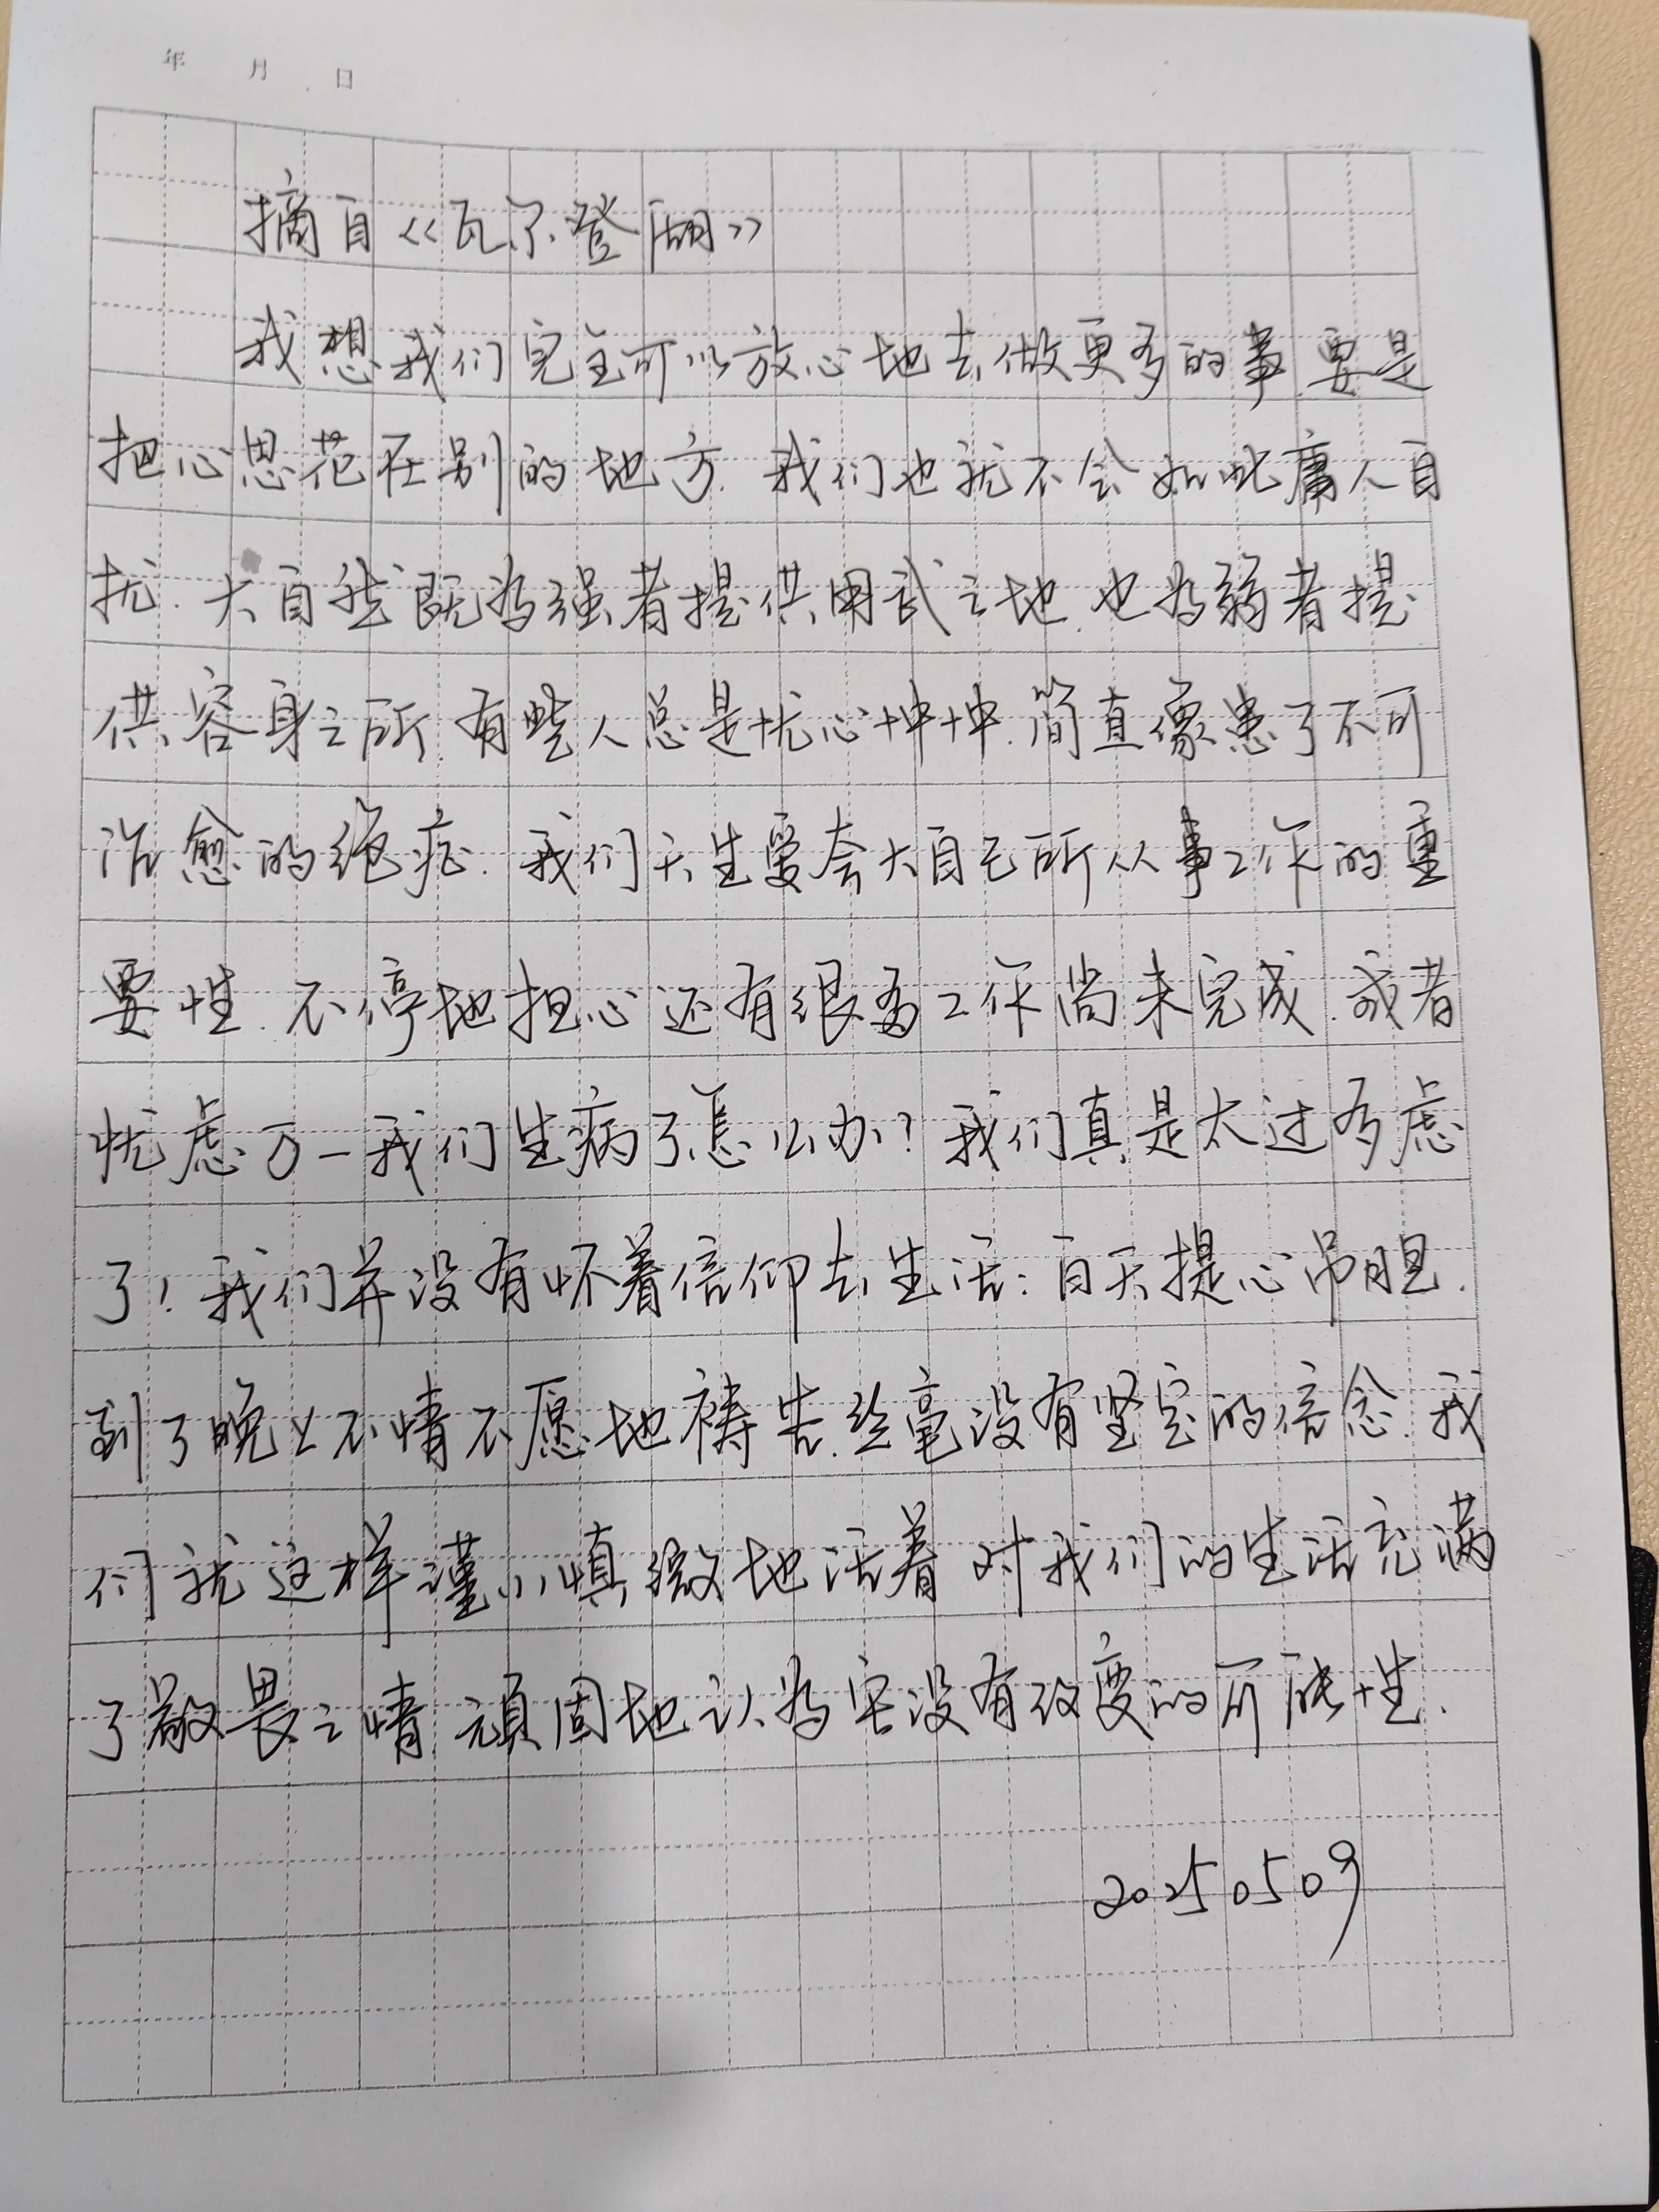 年 月 日
摘自《瓦尔登湖》
我想我们完全可以放心地去做更多的事.要是
把心思花在别的地方.我们也就不会如此庸人自
扰.大自然既为强者提供用武之地.也为弱者提
供容身之所.有些人总是忧心忡忡.简直像患了不可
治愈的绝症.我们天生要夸大自己所从事工作的重
要性.不停地担心还有很多工作尚未完成.或者
忧虑万一我们生病了怎么办?我们真是太过多虑
了!我们并没有怀着信仰去生活:白天提心吊胆.
到了晚上不情不愿地祷告.丝毫没有坚定的信念.我
们就这样谨小慎微地活着 对我们的生活充满
了敬畏之情.顽固地认为它没有改变的可能性.
20250509